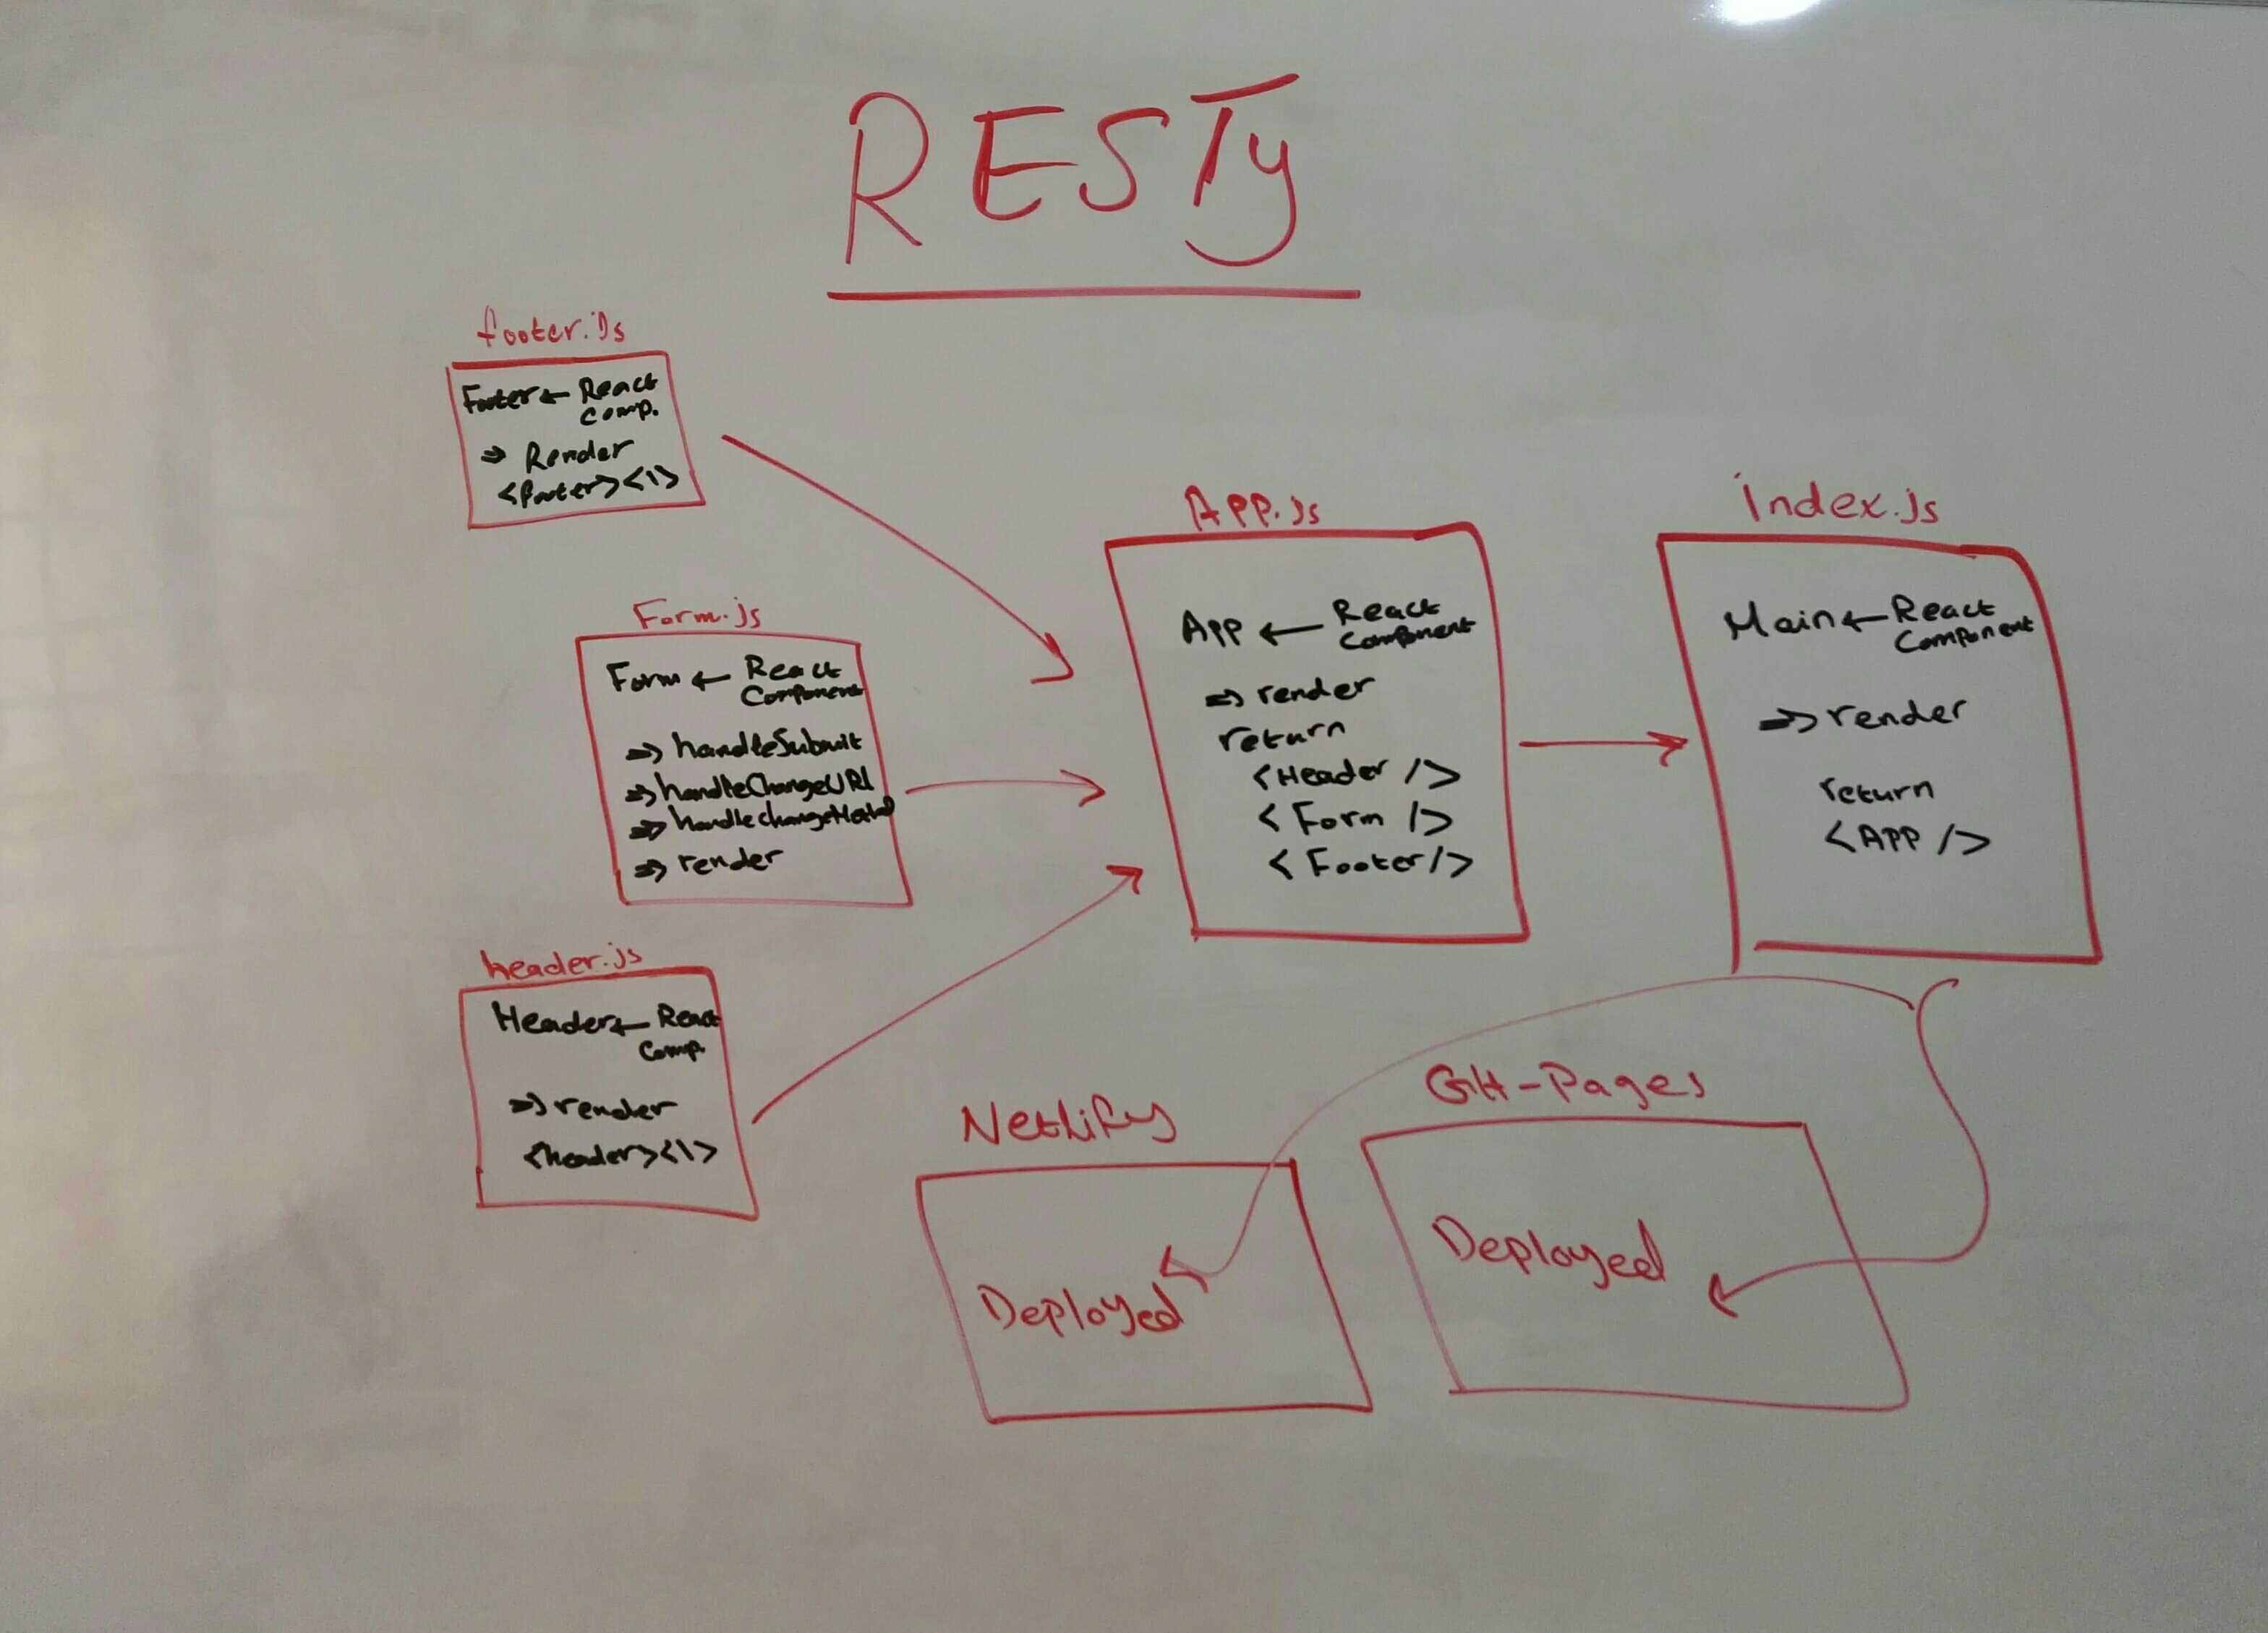 RESTy
footer.js
Footer ← React
comp.
⇒ Render
<footer><\>
Form.js
Form ← React
Component
⇒ handleSubmit
⇒ handleChangeURl
⇒ handlechangeMethod
⇒ render
header.js
Header ← React
Comp.
⇒ render
<header><\>
App.js
App ← React
Component
⇒ render
return
<Header />
<Form />
<Footer/>
index.js
Main ← React
Component
⇒ render
return
<APP />
Netlify
Deployed
GH-Pages
Deployed